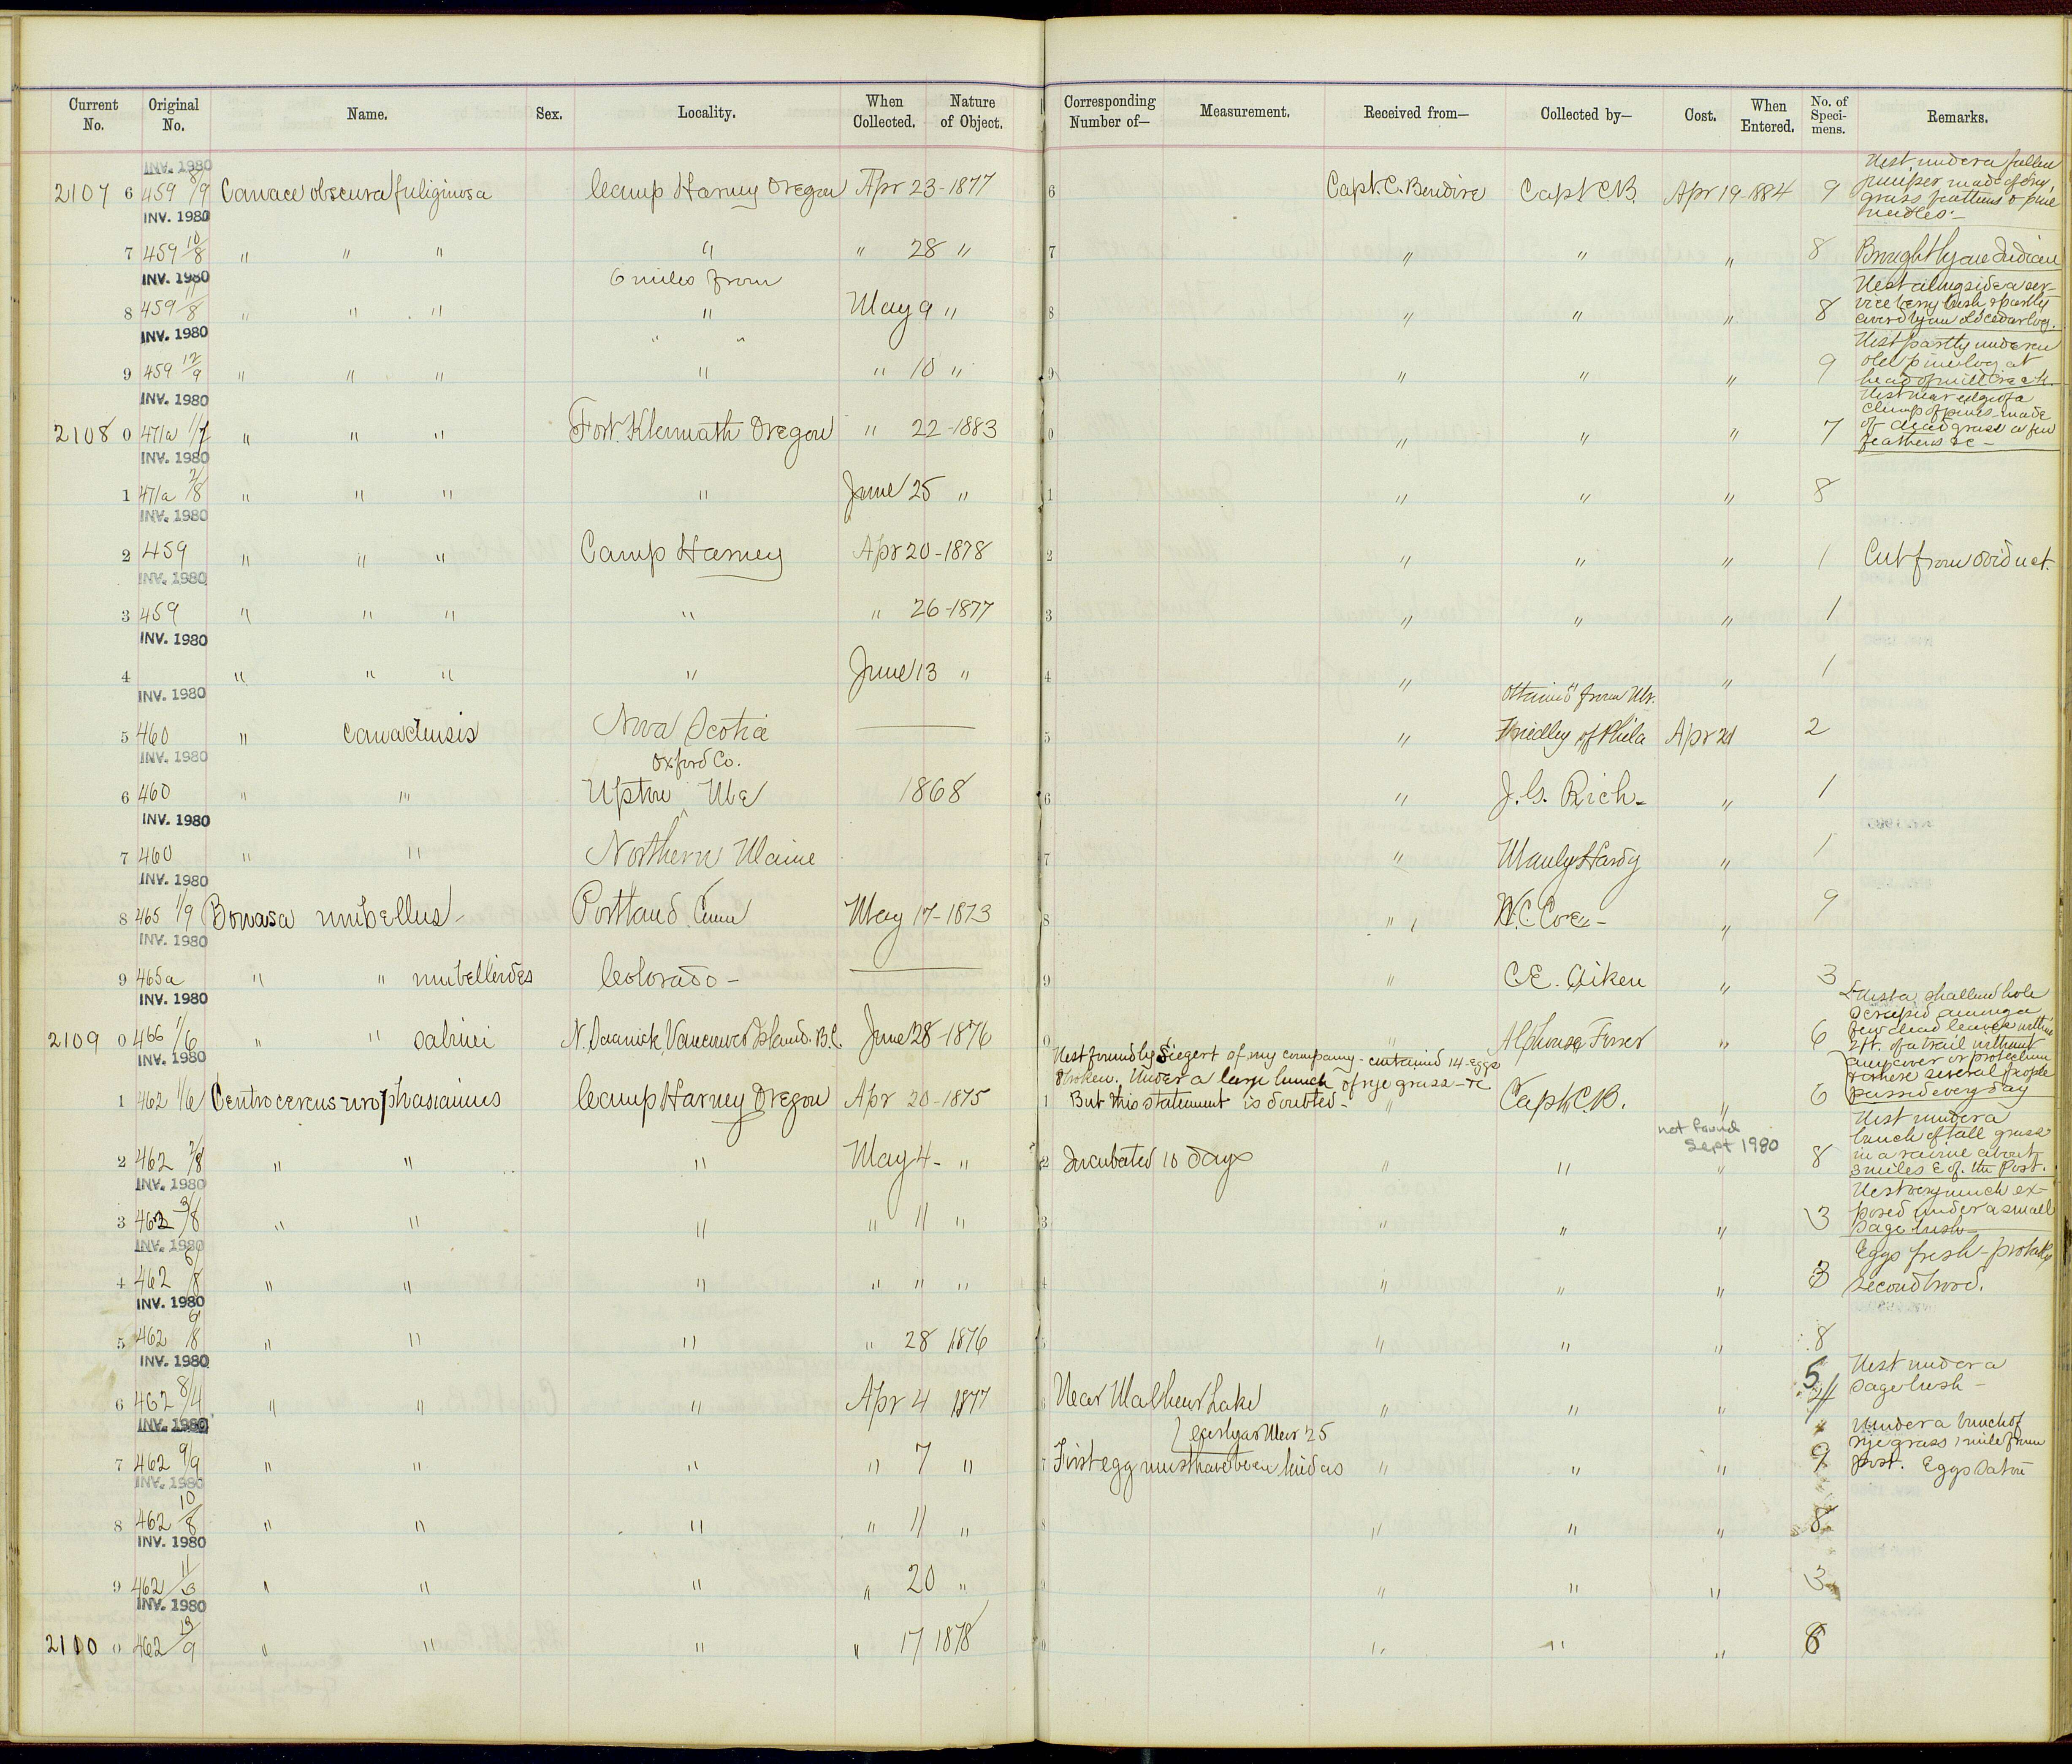 Current No. Original No. Name. Sex. Locality. When Collected. Nature of Object. Corresponding Number of— Measurement. Received from— Collected by— Cost. When Entered. No. of Specimens. Remarks.
INV. 1980
2107 6 459 8/9 Canace obscura fuliginosa Camp Harney Oregon Apr 23-1877 6 Capt. C. Bendire Capt CB. Apr 19-1884 9 Nest under a fallen juniper made of dry grass feathers & pine needles.—
INV. 1980
7 459 10/8 " " " " " 28 " 7 " " " 8 Brought by an Indian
INV. 1980
6 miles from
8 459 11/8 " " " " May 9 " 8 " " " 8 Nest alongside a service berry bush & partly covered by an old cedar log.
INV. 1980
" "
9 459 12/9 " " " " " 10 " 9 " " " 9 Nest partly under an old pine log at head of mill Creek.
INV. 1980
2108 0 471a 1/7 " " " Fort Klamath Oregon " 22-1883 0 " " " 7 Nest near edge of a clump of pines made of dead grass a few feathers &c —
INV. 1980
1 471a 2/8 " " " " June 25 " 1 " " " 8
INV. 1980
2 459 " " " Camp Harney Apr 20-1878 2 " " " 1 Cut from oviduct.
INV. 1980
3 459 " " " " " 26-1877 3 " " " 1
INV. 1980
4 " " " " June 13 " 4 " " 1
INV. 1980
obtained from Mr.
5 460 " canadensis Nova Scotia — 5 " of Phila Apr 21 2
INV. 1980
Oxford Co.
6 460 " " Upton Me 1868 6 " J. G. Rich- " 1
INV. 1980
7 460 " " Northern Maine 7 " Manly Hardy " 1
INV. 1980
8 465 1/9 Bonasa umbellus- Portland Conn May 17-1873 8 " W. C. Coe- " 9
INV. 1980
9 465a " " umbelloides Colorado - — 9 " C.E. Aiken " 3
INV. 1980
2109 0 466 1/6 " " sabini N. Saanick, Vancouver Island. B.C. June 28-1876 0 " Alphonse Forrer " 6 Nest a shallow hole scraped among a few dead leaves within 2 ft. of a trail without any cover or protection & where several people passed every day
INV. 1980
Nest found by Siegert of my company- contained 14 eggs
8 broken. Under a large bunch of rye grass - &c
1 462 1/6 Centrocercus urophasianus Camp Harney Oregon Apr 20-1875 1 But this statement is doubted- " Capt. C.B. " 6
INV. 1980
not found Sept 1980
2 462 2/8 " " " May 4- " 2 Incubated 10 days " " " 8 Nest under a bunch of tall grass in a ravine about 3 miles E of the Post.
INV. 1980
3 462 3/8 " " " " 11 " 3 " " " 3 Nest very much exposed under a small sage bush—
INV. 1980
4 462 6/8 " " " " " " 4 " " " 3 Eggs fresh - probably second brood.
INV. 1980
5 462 /8 " " " " 28 1876 5 " " " 8
INV. 1980
6 462 8/4 " " " Apr 4 1877 6 Near Malheur Lake " " " 5 4 Nest under a sage bush —
INV. 1980
early as Mar 25
7 462 9/9 " " " " 7 " 7 First egg must have been laid as " " " 9 Under a bunch of rye grass 1 mile from post. Eggs
INV. 1980
8 462 10/8 " " " " 11 " 8 " " " 8
INV. 1980
9 462 11/3 " " " " 20 " 9 " " " 3
INV. 1980
2110 0 462 13/9 " " " " 17 1878 0 " " " 8